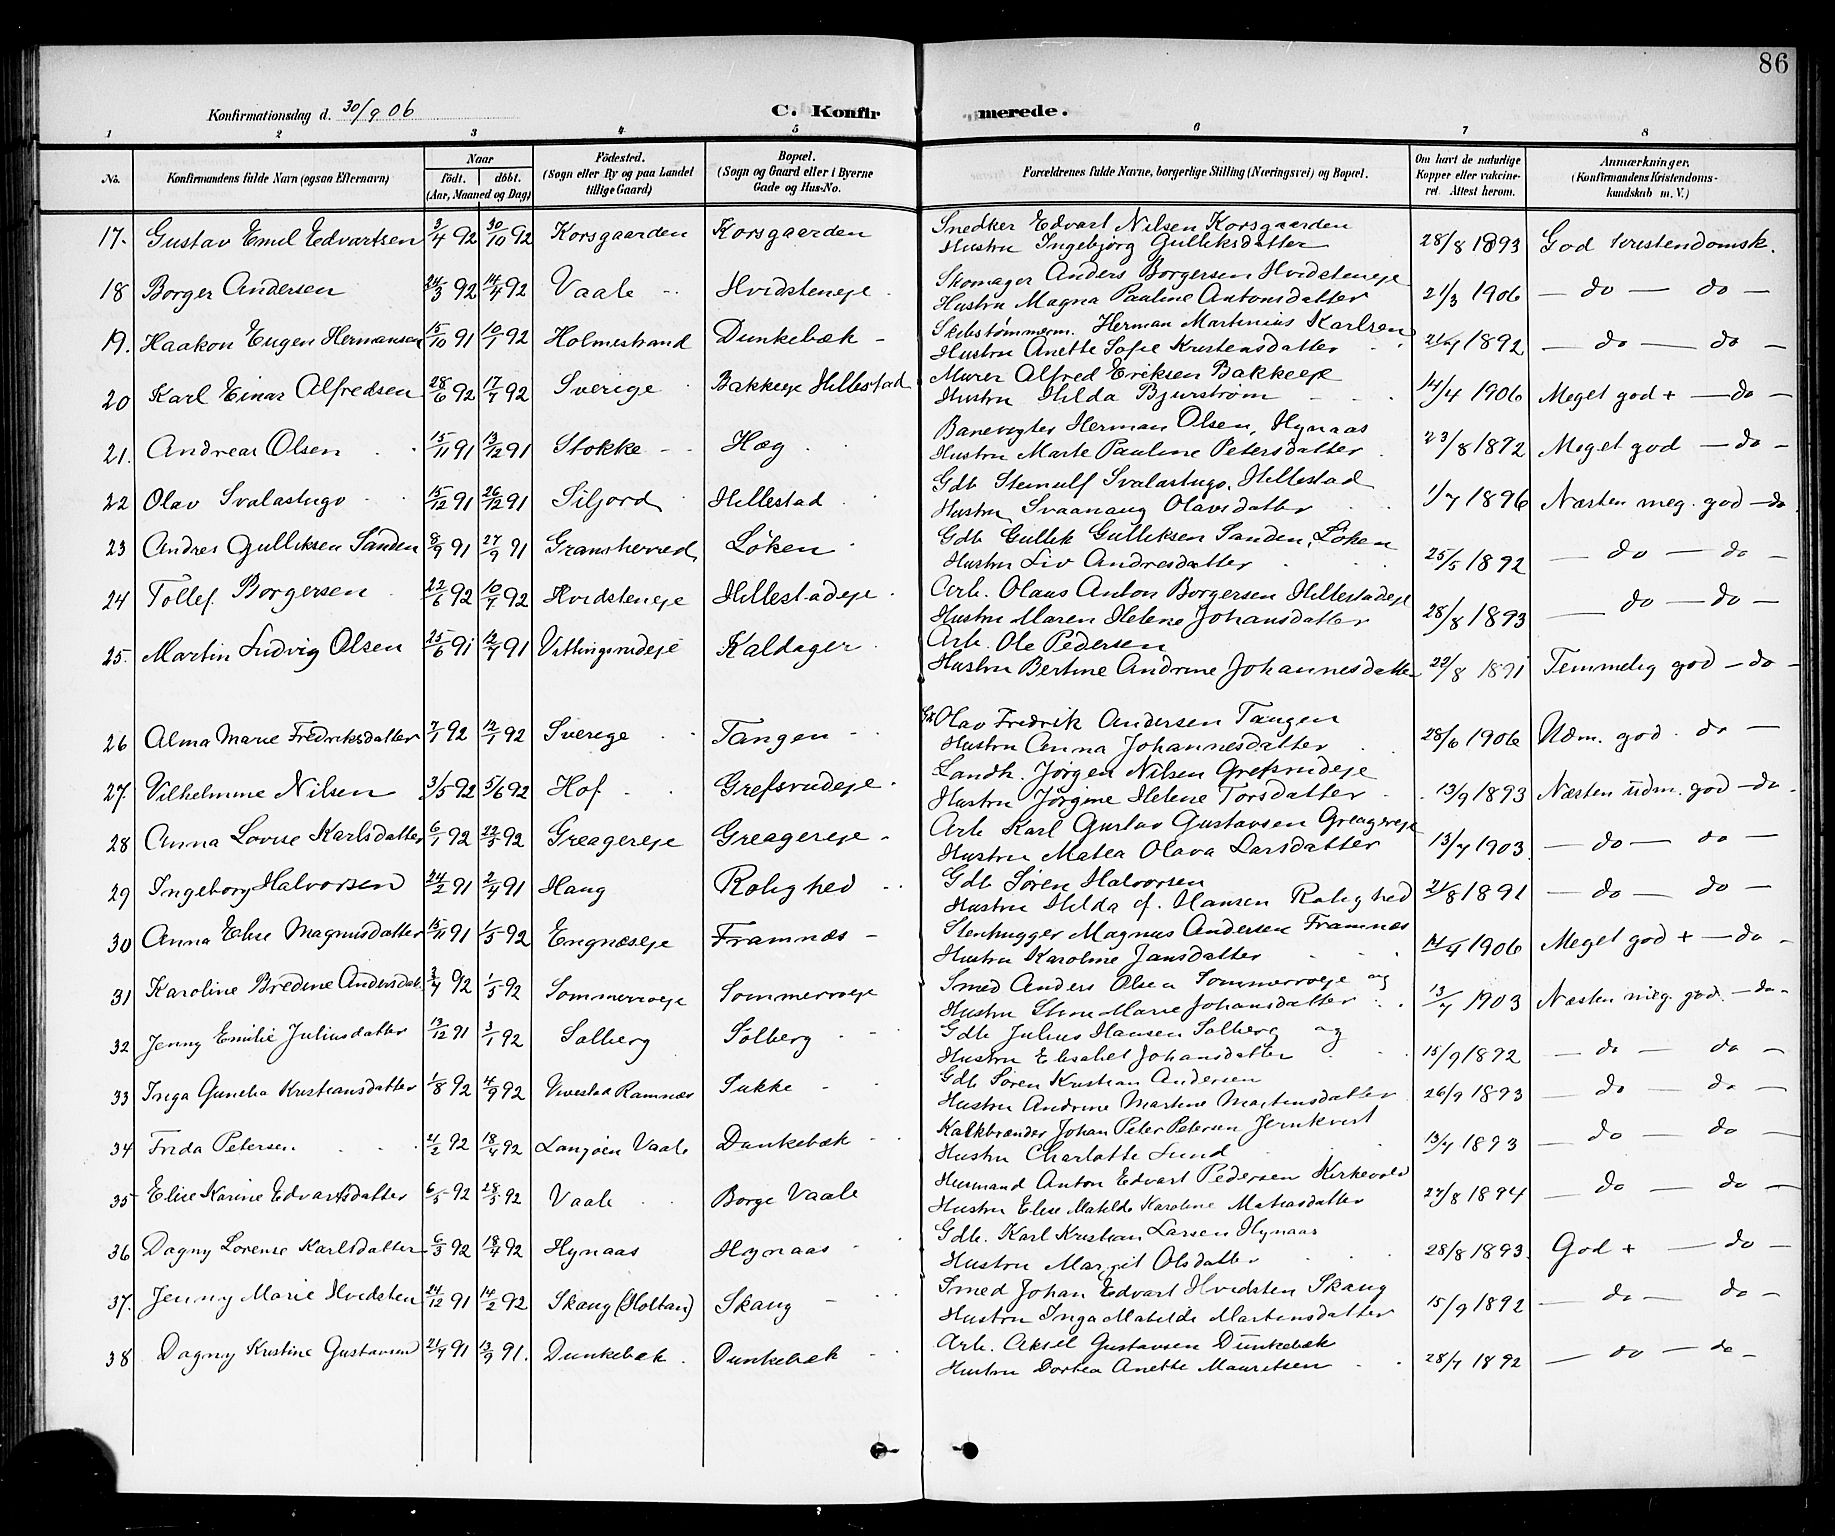 86
Konfirmationsdag d. 30/9 06
C. Konfir merede.
1 2 3 4 5 6 7 8
No. Konfirmandens fulde Navn (ogsaa Efternavn) Naar født. døbt. (Aar, Maaned og Dag) Fødested. (Sogn eller By og paa Landet tillige Gaard) Bopæl. (Sogn og Gaard eller i Byerne Gade og Hus-No. Forældrenes fulde Navne, borgerlige Stilling (Næringsvei) og Bopæl. Om havt de naturlige Kopper eller vakcineret. Attest herom. Anmærkninger. (Konfirmandens Kristendomskundskab m. V.)
17. Gustav Emil Edvartsen 3/4 92 30/10 92 Korsgaarden Korsgaarden Snedker Edvart Nilsen Korsgaarden
Hustru Ingebjørg Gulliksdatter 28/8 1893 God kristendomsk.
18 Borger Andersen 24/3 92 14/4 92 Vaale Hvidsteneje Skomager Anders Borgersen Hvidsteneje
Hustru Magna Pauline Antonsdatter 21/3 1906 — do — do —
19. Haakon Eugen Hermansen 15/10 91 10/1 92 Holmestrand Dunkebæk Skibstømmerm. Herman Martinius Karlsen
Hustru Anette Sofie Kristensdatter 1892 — do — do —
20 Karl Einar Alfredsen 28/6 92 17/7 92 Sverige Bakkeeje Hillestad Murer Alfred Eriksen Bakkeeje
Hustru Hilda Bjurstrøm 14/4 1906 Meget god + — do —
21. Andreas Olsen 15/11 91 13/12 91 Stokke Hæg Banevogter Herman Olsen, Hynaas
Hustru Marte Pauline Petersdatter 23/8 1892 Meget god — do —
22 Olav Svalastugo 15/12 91 26/12 91 Siljord Hillestad Gdb Steinulf Svalastugo, Hillestad
Hustru Svaanaug Olavsdatter 1/7 1896 Næsten meg. god — do
23 Andres Gulliksen Sanden 8/9 91 27/9 91 Gransherred Løken Gdb Gullik Gulliksen Sanden, Løken
Hustru Liv Andresdatter 25/5 1892 — do — do —
24 Tollef Borgersen 22/6 92 10/7 92 Hvidsteneje Hillestadeje Arb. Olaus Anton Borgersen Hillestadeje
Hustru Maren Helene Johansdatter 28/8 1893 — do — do —
25. Martin Ludvig Olsen 25/6 91 12/7 91 Vittingsrudeje Kaldager Arb. Ole Pedersen
Hustru Bertine Andrine Johannesdatter 22/8 1891 Temmelig god — do —
26 Alma Marie Fredriksdatter 7/1 92 12/1 92 Sverige Tangen Olav Fredrik Andersen Tangen
Hustru Anna Johannesdatter 28/6 1906 Udm. god. do —
27 Vilhelmine Nilsen 3/5 92 5/6 92 Hof Grefsrudeje Landh. Jørgen Nilsen Grefsrudeje
Hustru Jørgine Helene Torsdatter 13/9 1893 Næsten udm. god — do
28 Anna Lovise Karlsdatter 6/1 92 22/5 92 Greagereje Greagereje Arb Karl Gustav Gustavsen Greagereje
Hustru Matea Olava Larsdatter 13/7 1903 — do — do —
29 Ingeborg Halvorsen 24/2 91 2/4 91 Haug Rolighed Gdb Søren Halvorsen
Hustru Hilda f. Hansen Rolighed 21/8 1891 — do — do —
30 Anna Elise Magnusdatter 15/11 91 1/5 92 Engnæseje Framnæs Stenhugger Magnus Andersen Framnæs
Hustru Karoline Jansdatter 1906 Meget god + — do —
31 Karoline Bredine Andersdat. 3/4 92 1/5 92 Sommerroeje Sommerroeje Smed Anders Olsen Sommerroeje og
Hustru Marie Johansdatter 13/7 1903 Næsten meg. god. — do —
32 Jenny Emilie Juliusdatter 13/12 91 3/1 92 Solberg Solberg Gdb Julius Hansen Solberg og
Hustru Elisabet Johansdatter 15/9 1892 — do — do —
33 Inga Gunelia Kristiansdatter 1/8 92 4/9 92 Vivestad Ramnæs Sukke Gdb Søren Kristian Andersen
Hustru Andrine Martine Martinsdatter 26/9 1893 — do — do —
34 Frida Petersen 21/2 92 18/4 92 Langøen Vaale Dunkebæk Kalkbrænder Johan Peter Petersen Jernkvist
Hustru Charlotte Lund 13/7 1893 — do — do —
35 Elise Karine Edvartsdatter 6/3 92 28/5 92 Vaale Borge Vaale Husmand Anton Edvart Pedersen Kirkevold
Hustru Elise Matilde Karoline Matiasdatter 27/8 1894 — do — do —
36 Dagny Lorense Karlsdatter 6/3 92 18/4 92 Hynaas Hynaas Gdb. Karl Kristian Larsen Hynaas
Hustru Margit Olsdatter 28/8 1893. God + — do —
37. Jenny Marie Hvidsten 24/12 91 14/2 92 Skaug (Holtan) Skaug Smed Johan Edvart Hvidsten Skaug
Hustru Inga Matilde Martinsdatter 15/9 1892 — do — do —
38 Dagny Kristine Gustavsen 21/7 91 13/9 91. Dunkebæk. Dunkebæk Arb. Aksel Gustavsen Dunkebæk
Hustru Dortea Anette Mauritsen 28/7 1892 — do — do —